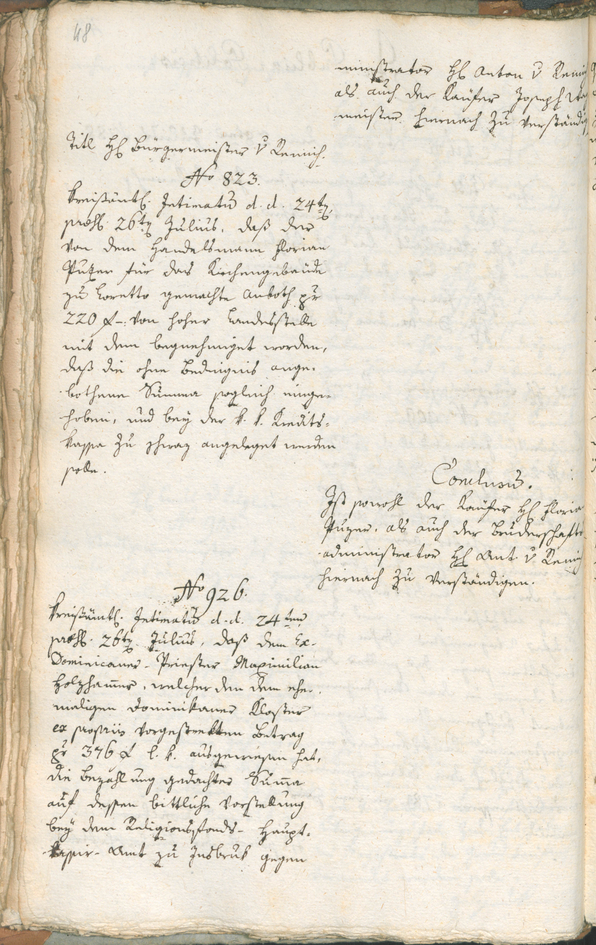 48
ministrator H Anton v Remich
als auch der Kaufer Joseph
meister hiernach zu verständigen
Titl. H Burgermeister v Remich.
No 823.
Kreisämtl. Intimatum d. d. 24ten
praes. 26ten Julius, daß der
von dem Handelsmann Florian
Putzer für das Kirchengebäude
zu Loretto gemachte Anboth pr
220 f. von hoher Landesstelle
mit dem begnehmiget worden,
daß die ohne Bedingnis ange-
bothene Summa sogleich einge-
hoben, und bey der k. k. Kredits-
kassa zu Schwaz angeleget werden
solle.
Conclusum.
Ist sowohl der Kaufer H Floria
Putzer, als auch der Bruderschafts
administrator H Ant v Remich
hiernach zu verständigen.
No 926.
Kreisämtl. Intimatum d. d. 24ten
praes. 26ten Julius, daß dem Ex-
Dominicaner-Priester Maximilian
Holzhamer, welcher den dem ehe-
maligen Dominikaner Kloster
ex propriis vorgestreckten Betrag
pr 376 f l. k. ausgewiesen hat,
die Bezahlung gedachter Suma
auf dessen bittliche Vorstellung
bey dem Religionsfonds-Haupt-
Kassir-Amt zu Insbruk gegen